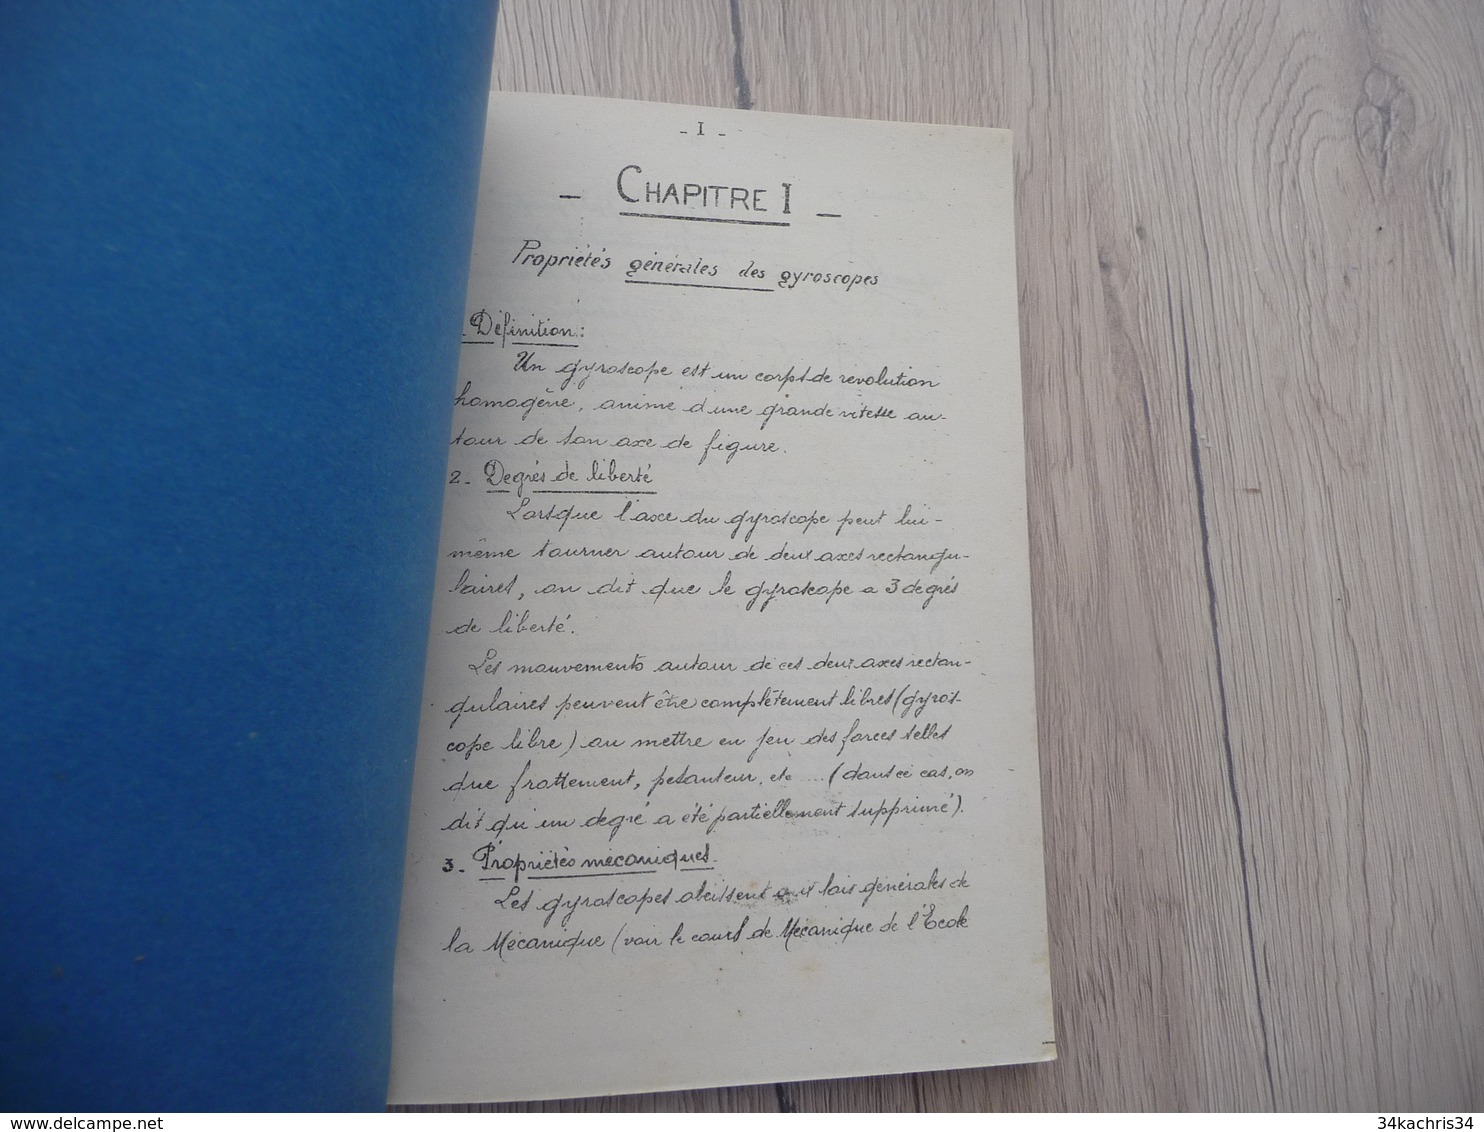 - I -
- CHAPITRE I -
Propriétés générales des gyroscopes
. Définition :
Un gyroscope est un corps de révolution
homogène, animé d'une grande vitesse au-
tour de son axe de figure.
2. Degrés de liberté
Lorsque l'axe du gyroscope peut lui-
même tourner autour de deux axes rectangu-
laires, on dit que le gyroscope a 3 degrés
de liberté.
Les mouvements autour de ces deux axes rectan-
gulaires peuvent être complètement libres (gyros-
cope libre) ou mettre en jeu des forces telles
que frottement, pesanteur, etc .... (dans ce cas, on
dit qu'un degré a été partiellement supprimé).
3. Propriétés mécaniques.
Les gyroscopes obéissent aux lois générales de
la Mécanique (voir le cours de Mécanique de l'École
delcampe.net
34kachris34